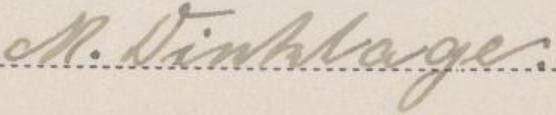 M. Dinklage.